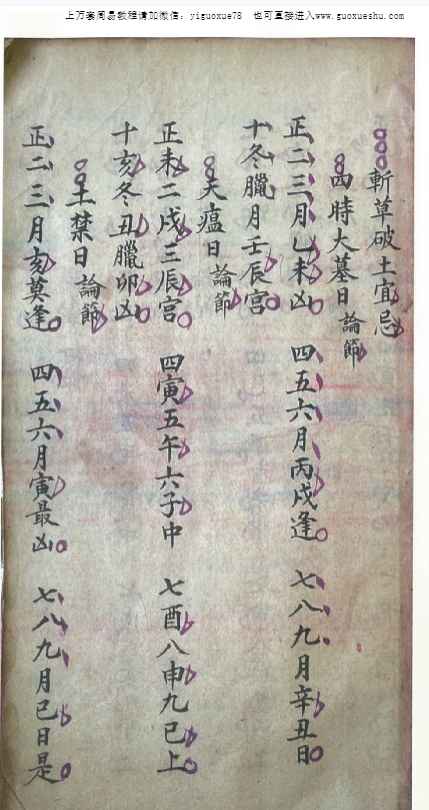 上万套周易教程请加微信：yiguoxue78　也可直接进入www.guoxueshu.com
斬草破土宜忌
四時大墓日 論節
正二三月乙未凶 四五六月丙戌逢 七八九月辛丑日
十冬臘月壬辰宮
天瘟日 論節
正未二戌三辰宮 四寅五午六子中 七酉八申九巳上
十亥冬丑臘卯凶
土禁日 論節
正二三月亥莫逢 四五六月寅最凶 七八九月巳日是